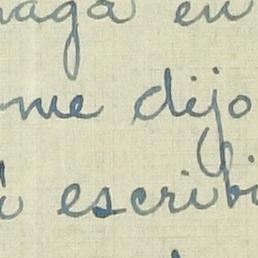 haga en
me dijo
escribi